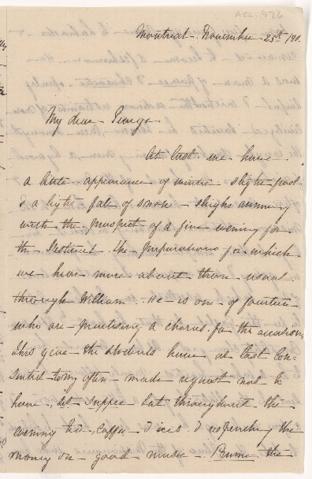 Montreal - November 25th /90.
My dear George.
At last we have
a little appearance of winter - sleighs
& a light fall of snow - sleighs running
with the prospect of a fine evening for
the Festival. the preparations for which
we have more about than usual
through William - He is one of fourteen
who are practising a chorus for the occasion
this year - the students have at last con-
sented to my often - made request not to
have set supper but throughout the
evening have coffee & ices & expending the
money on good music - Burns the